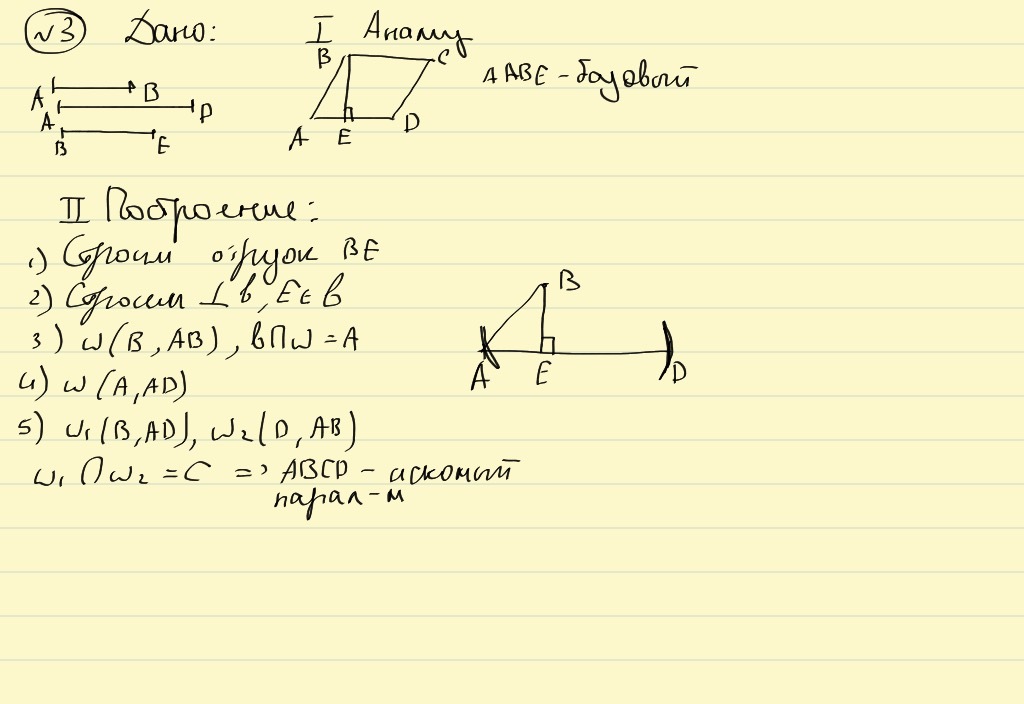 №3 Дано:
A B
A D
B E
I Анализ
B C
A E D
△ABE - базовый
II Построение:
1) Строим отрезок BE
2) Строим ⊥ b, E∈b
3) ω(B, AB), b∩ω = A
4) ω(A, AD)
5) ω₁(B, AD), ω₂(D, AB)
ω₁ ∩ ω₂ = C => ABCD - искомый
парал-м
B
A E D